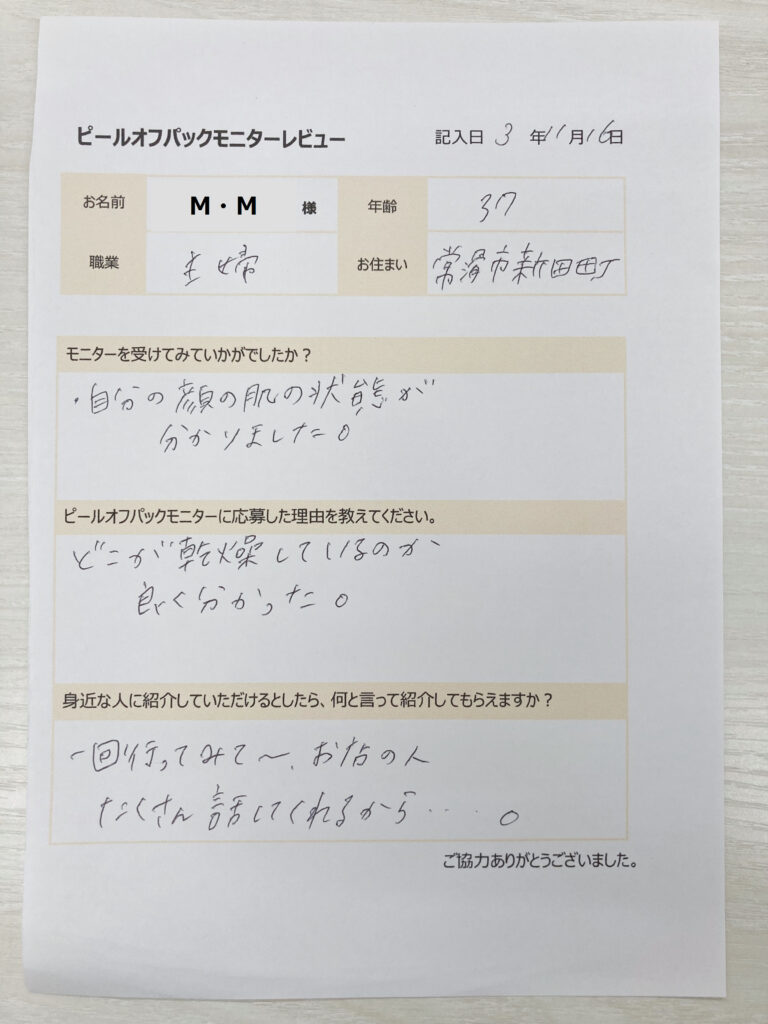 ピールオフパックモニターレビュー 記入日 3 年 11 月 16 日
お名前 M・M 様 年齢 37
職業 主婦 お住まい 常滑市新田町
モニターを受けてみていかがでしたか？
・自分の顔の肌の状態が
分かりました。
ピールオフパックモニターに応募した理由を教えてください。
どこが乾燥しているのか
良く分かった。
身近な人に紹介していただけるとしたら、何と言って紹介してもらえますか？
一回行ってみて～、お店の人
たくさん話してくれるから‥‥。
ご協力ありがとうございました。